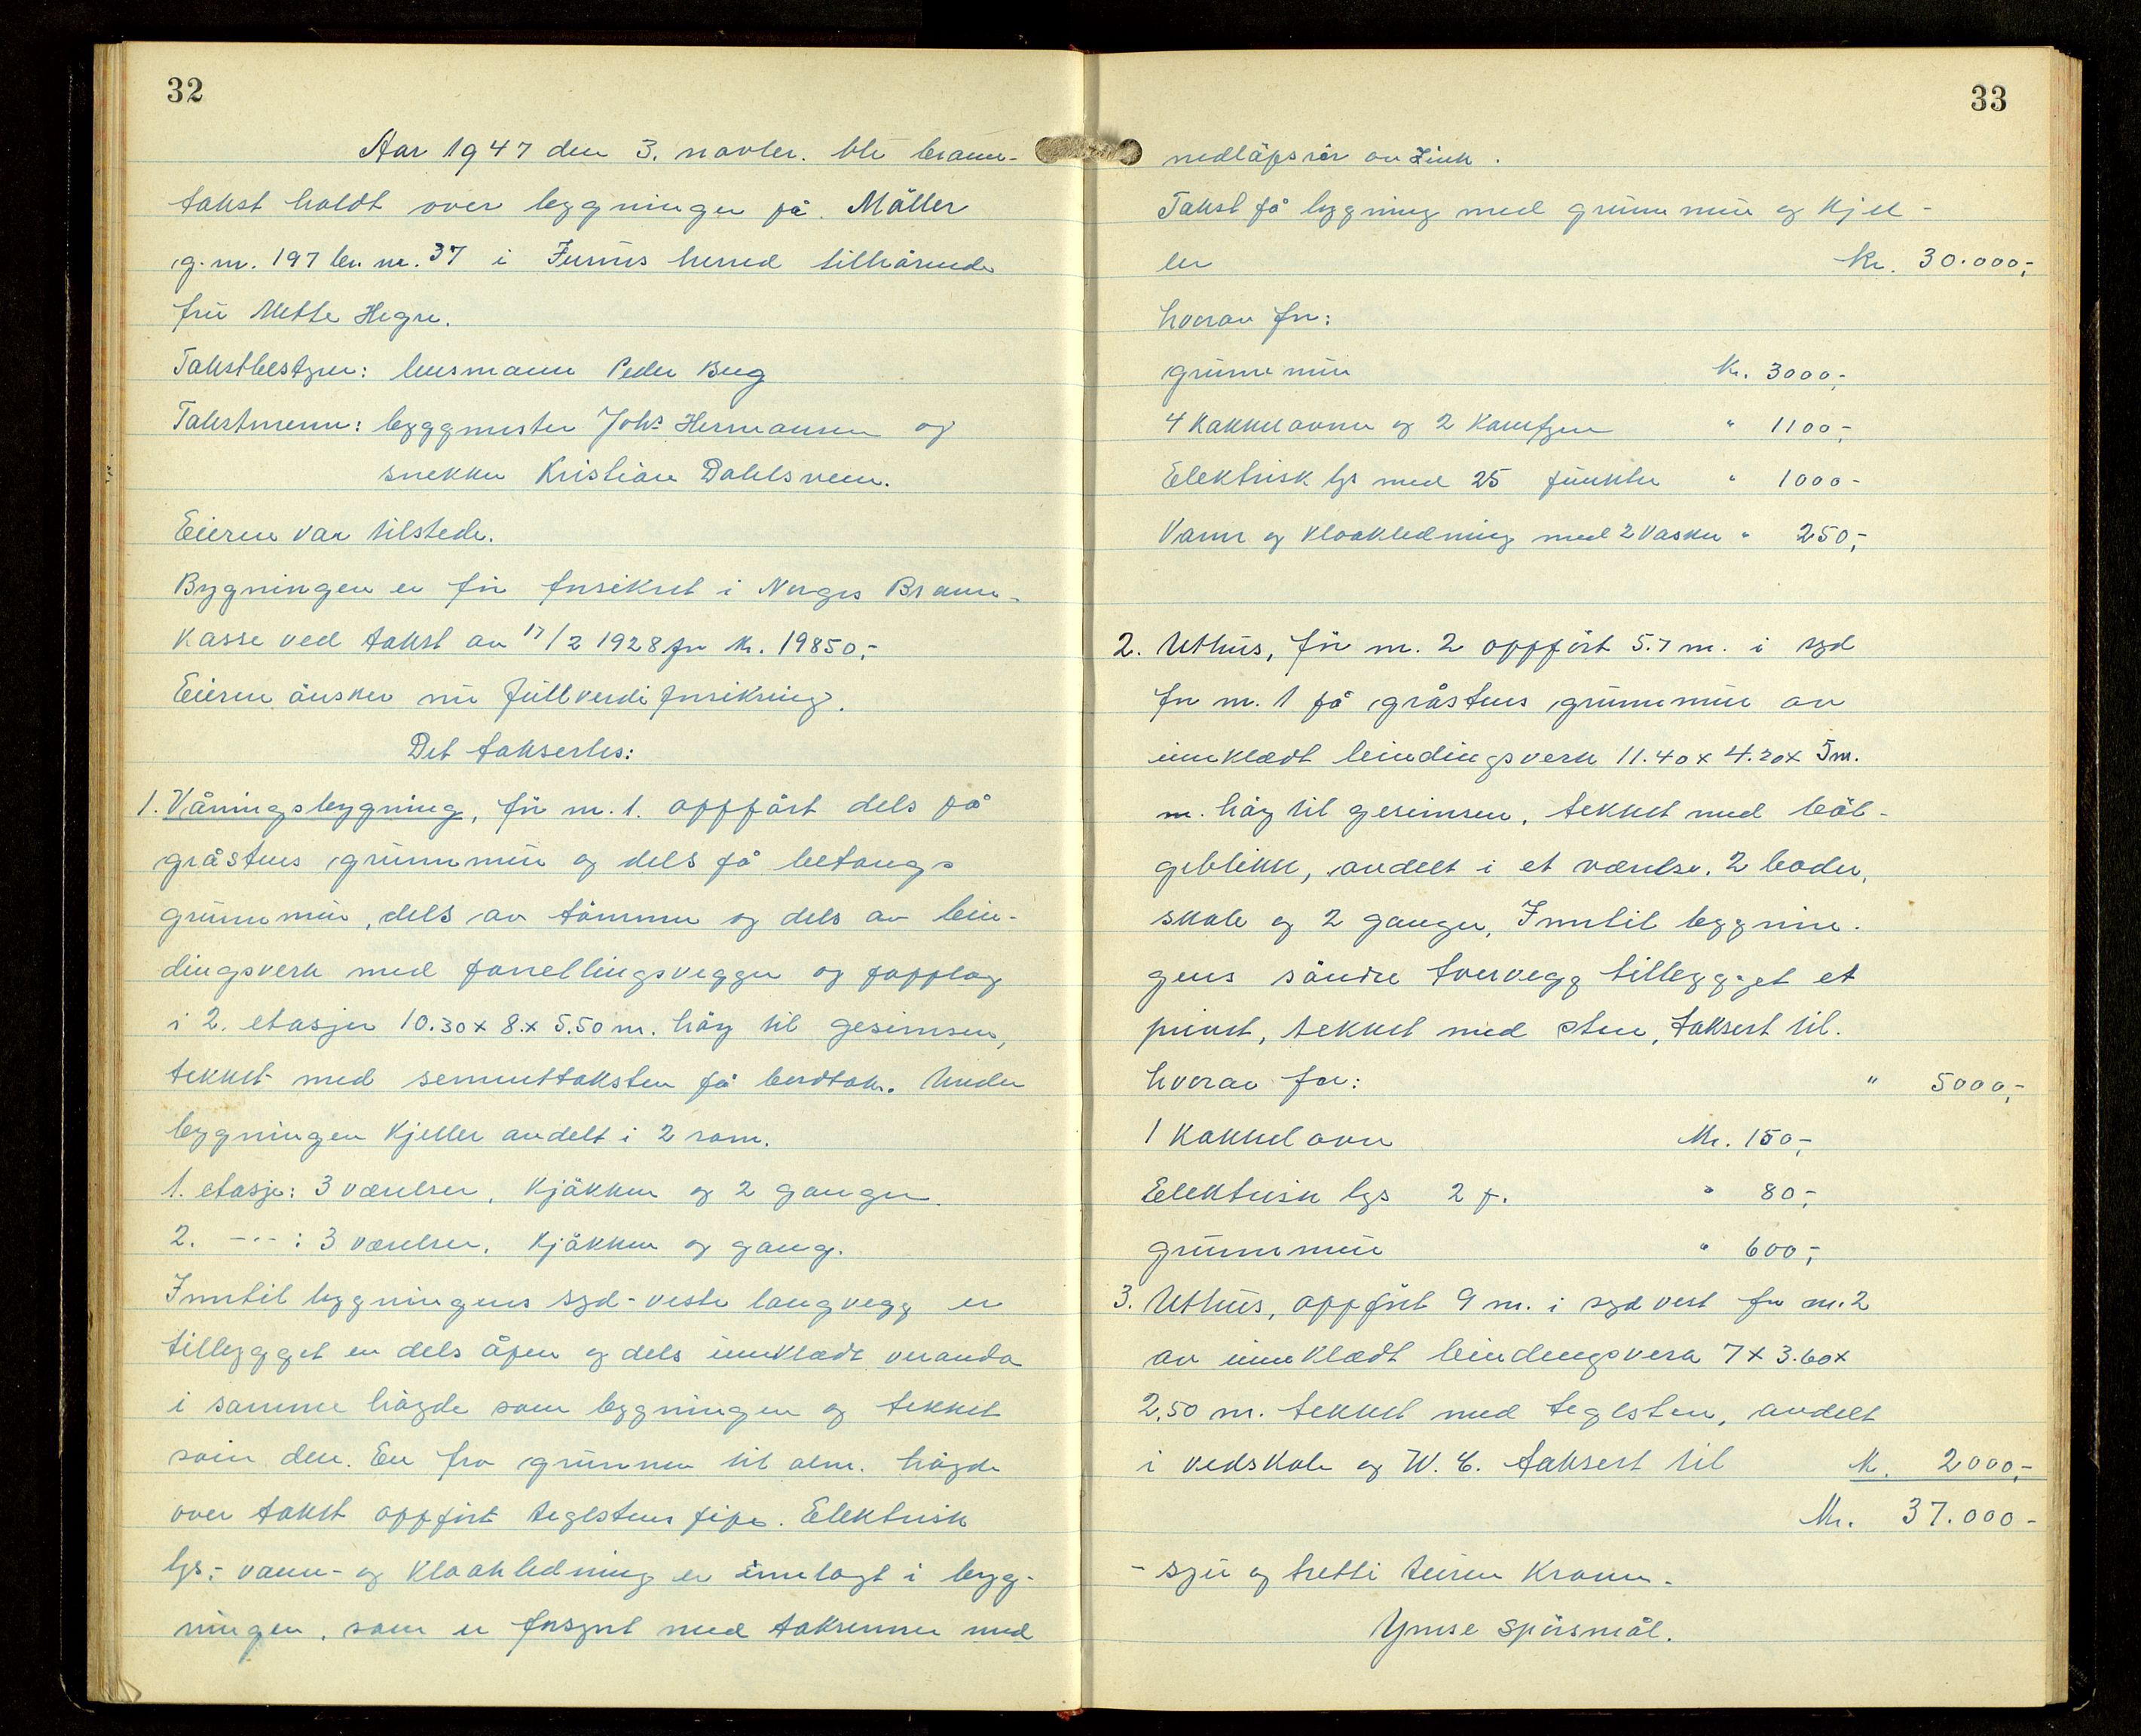 32
Aar 1947 den 3. novbr. ble brann-
takst holdt over bygninger på Möller
g.nr. 197 br. nr. 37 i Furnes herred tilhörende
fru Mette Hegre.
Takstbestyrer: lensmann Peder Berg
Takstmenn: byggmester Johs. Hermansen og
snekker Kristian Dahlsveen.
Eieren var tilstede.
Bygningen er för forsikret i Norges Brann-
kasse ved takst av 17/2 1928 for kr. 19850,-
Eieren önsker nu fullverdiforsikring.
Det takseres:
1. Våningsbygning, för nr. 1. oppfört dels på
gråstens grunnmur og dels på betongs
grunnmur, dels av tömmer og dels av bin-
dingsverk med panellingsvegger og papplag
i 2. etasjer 10.30 x 8. x 5.50 m. höy til gesimsen,
tekket med sementtaksten på bordtak. Under
bygningen kjeller avdelt i 2 rom.
1. etasje: 3 værelser, kjökken og 2 ganger.
2. -"- : 3 værelser, kjökken og gang.
Inntil bygningens syd-vestre langvegg er
tilbygget en dels åpen og dels innklædt veranda
i samme höyde som bygningen og tekket
som den. En fra grunnen til alm. höyde
over taket oppfört teglstens pipe. Elektrisk
lys,- vann- og kloakledning er innlagt i byg-
ningen, som er forsynt med takrenner med
33
nedlöpsrör av Zink.
Takst på bygning med grunnmur og kjel-
ler kr. 30.000,-
hvorav for:
grunnmur kr. 3000,-
4 kakkelovner og 2 komfyrer " 1100,-
Elektrisk lys med 25 punkter " 1000-
Vann og kloakledning med 2 vasker " 250,-
2. Uthus, för nr. 2 oppfört 5.7 m. i syd
for nr. 1 på gråstens grunnmur av
innklædt bindingsverk 11.40 x 4.20 x 5 m.
m. höy til gesimsen, tekket med böl-
geblikk, avdelt i et værelse, 2 boder,
skale og 2 ganger, Inntil bygnin-
gens söndre tvervegg tilbygget et
privet, tekket med sten, taksert til.
hvorav for: " 5000,-
1 kakkelovn kr. 150,-
Elektrisk lys 2 p. " 80,-
grunnmur " 600,-
3. Uthus, oppfört 9 m. i syd vest for nr. 2
av innklædt bindingsverk 7 x 3.60 x
2,50 m. tekket med teglsten, avdelt
i vedskale og W.C. taksert til k. 2000,-
Kr. 37.000-
- syv og tretti tusen kroner.
Ymse spörsmål.